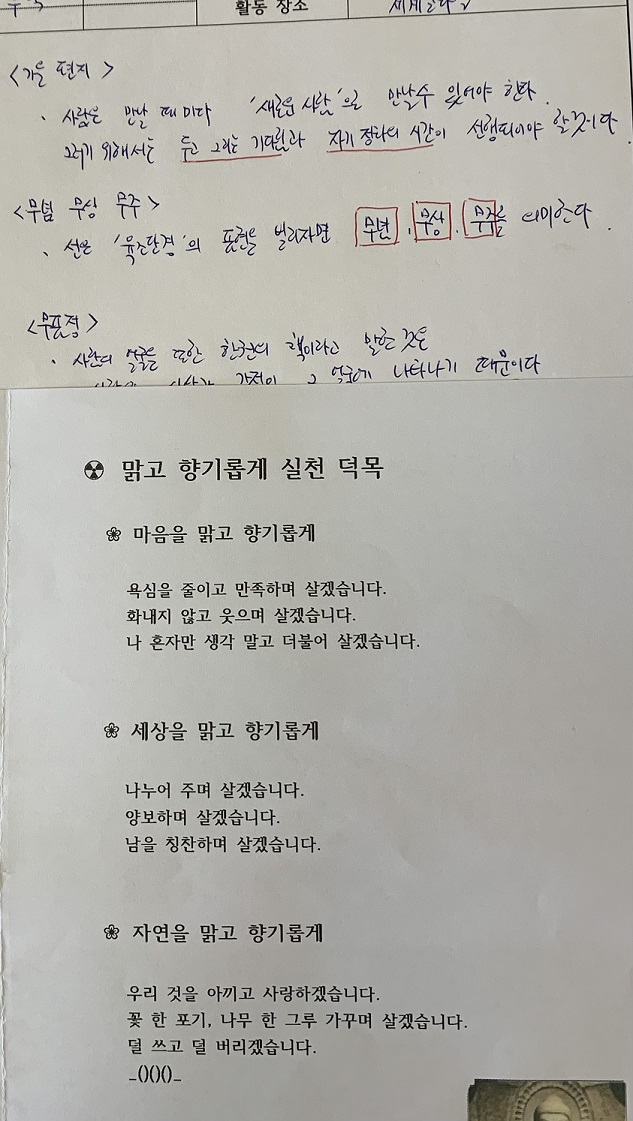 활동 장소
<가을 편지>
· 사람은 만날 때마다 '새로운 사람'으로 만날수 있어야 한다.
그러기 위해서는 두고 그리는 기다림과 자기 정화의 시간이 선행되어야 할것이다.
<무념 무상 무주>
· 선은 '육조단경'의 표현을 빌리자면 무념, 무상, 무주를 의미한다.
<무표정>
· 사람의 얼굴을 또한 한권의 책이라고 말한 것은
그 얼굴에 나타나기 때문이다
☢ 맑고 향기롭게 실천 덕목
❀ 마음을 맑고 향기롭게
욕심을 줄이고 만족하며 살겠습니다.
화내지 않고 웃으며 살겠습니다.
나 혼자만 생각 말고 더불어 살겠습니다.
❀ 세상을 맑고 향기롭게
나누어 주며 살겠습니다.
양보하며 살겠습니다.
남을 칭찬하며 살겠습니다.
❀ 자연을 맑고 향기롭게
우리 것을 아끼고 사랑하겠습니다.
꽃 한 포기, 나무 한 그루 가꾸며 살겠습니다.
덜 쓰고 덜 버리겠습니다.
_()()()_